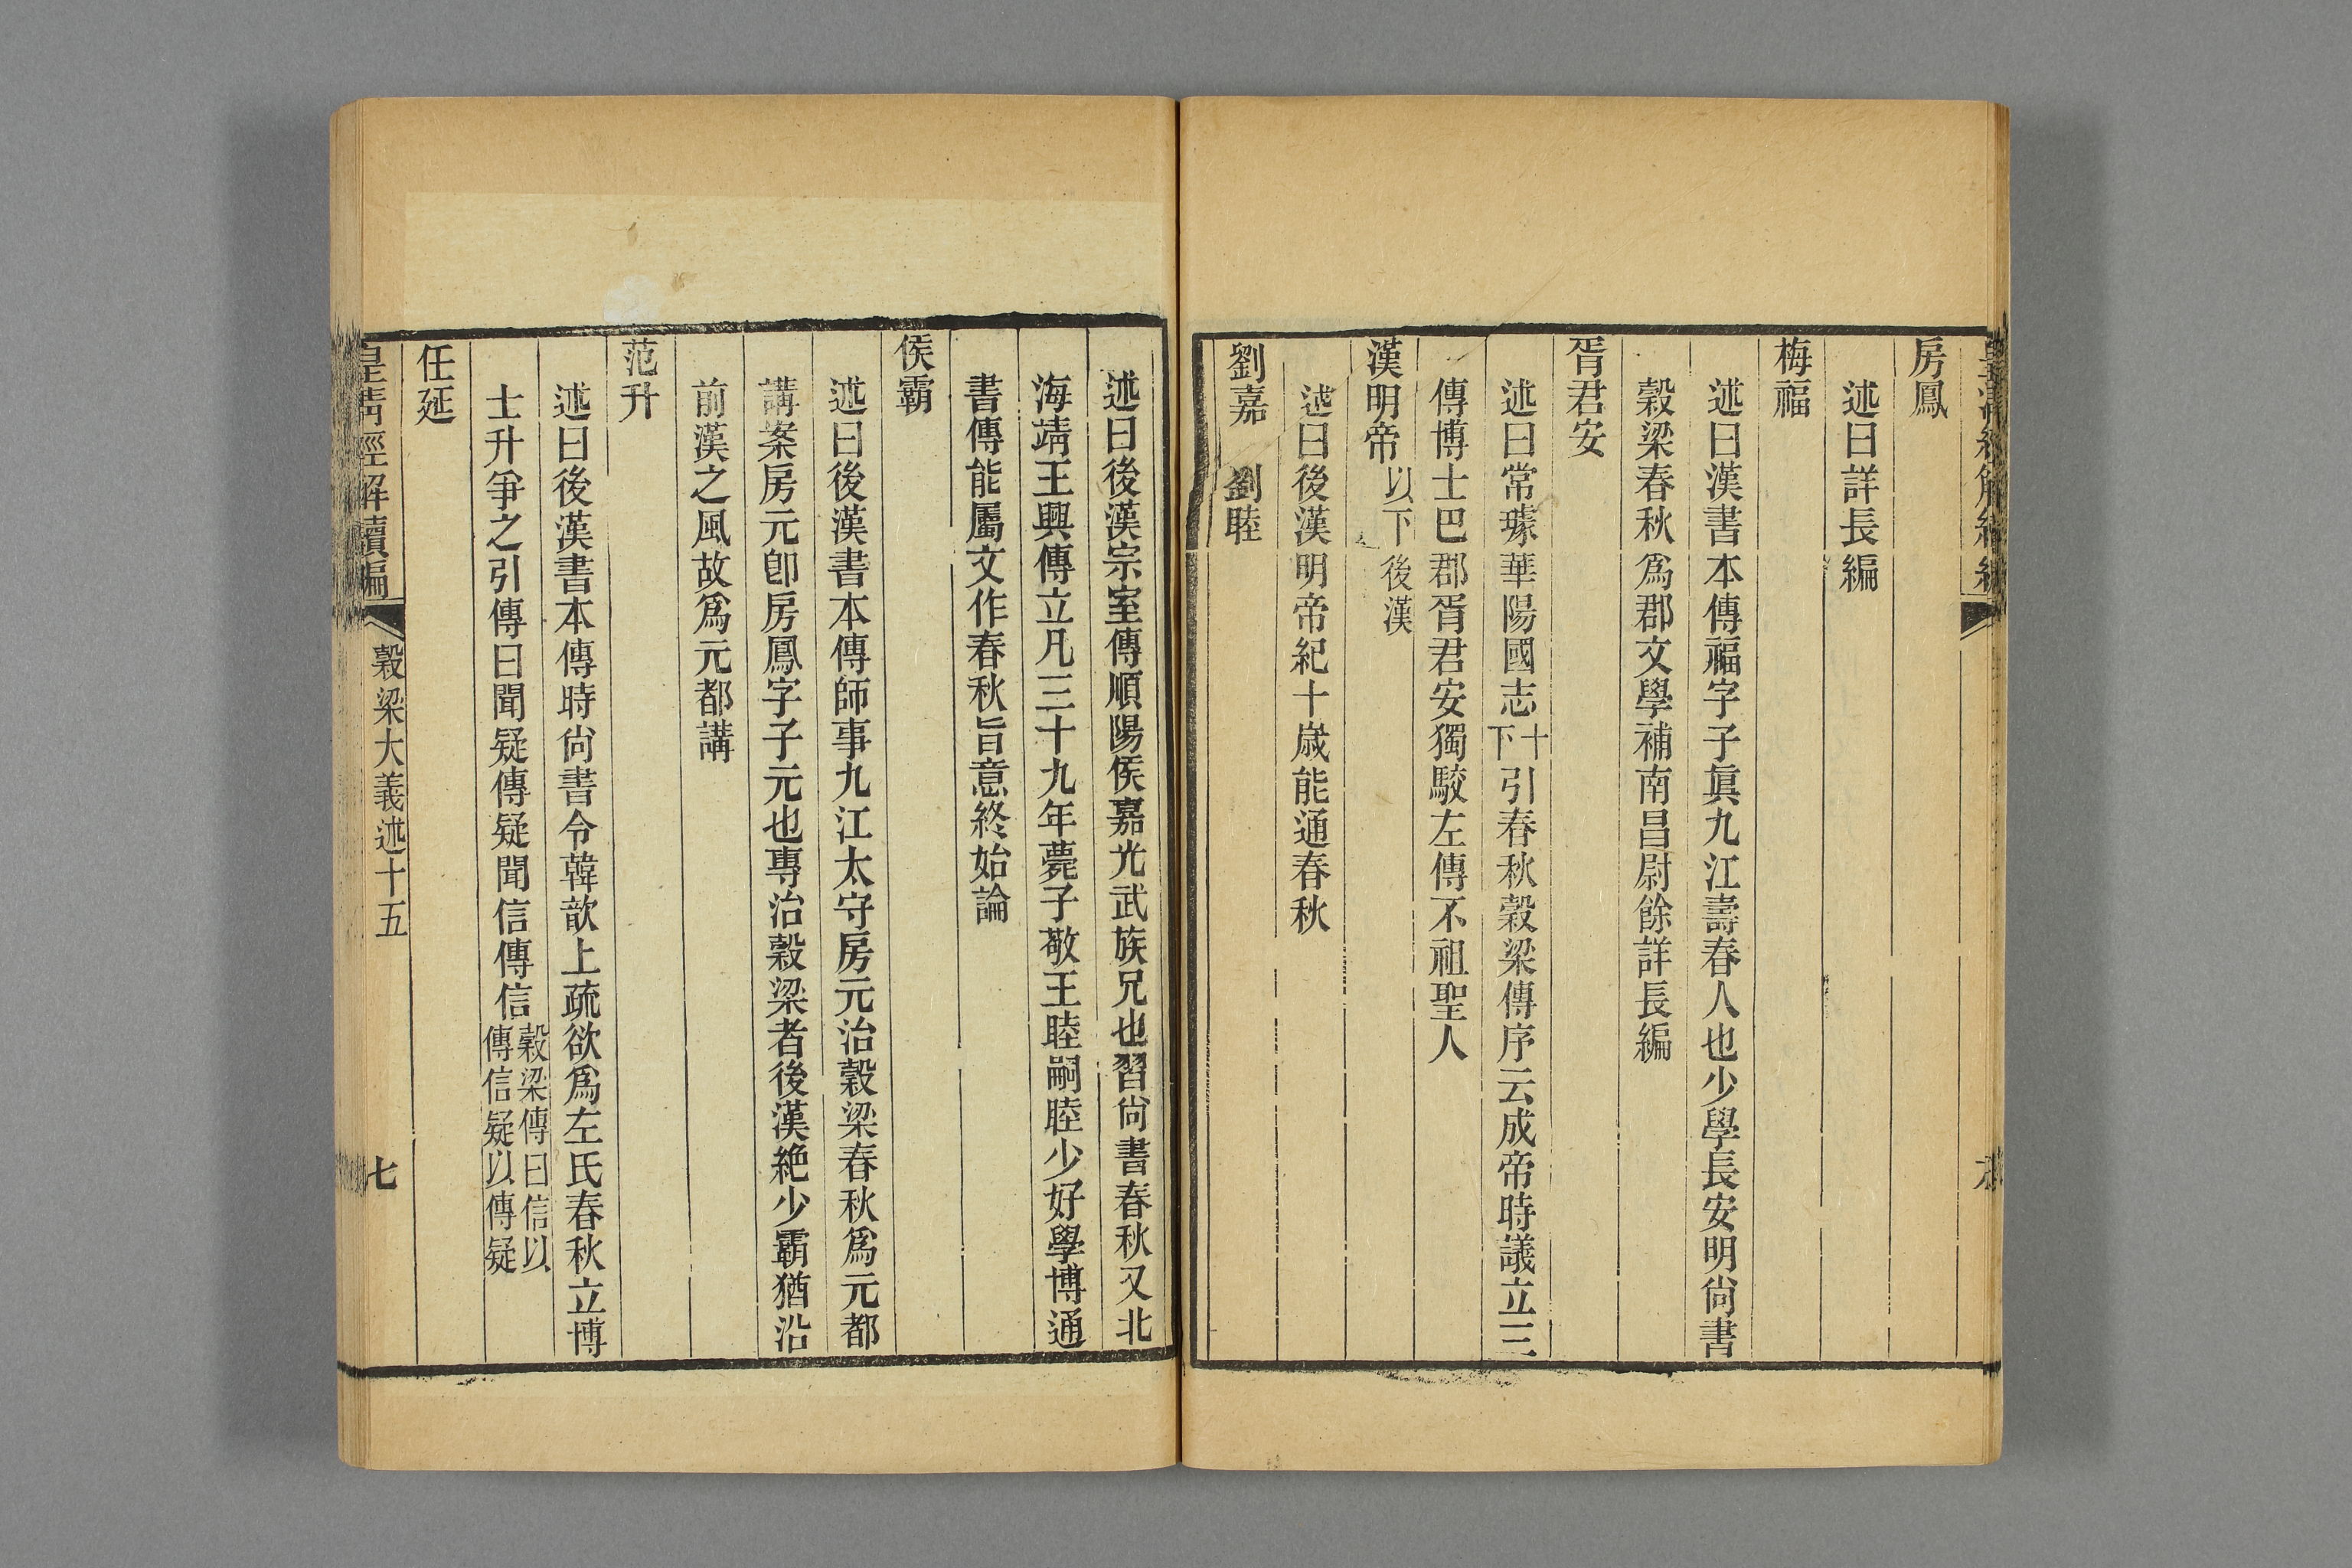 房鳳
述曰詳長編
梅福
述曰漢書本傳福字子眞九江壽春人也少學長安明尙書
穀梁春秋爲郡文學補南昌尉餘詳長編
胥君安
述曰常璩華陽國志十下引春秋穀梁傳序云成帝時議立三
傳博士巴郡胥君安獨駮左傳不祖聖人
漢明帝以下後漢
述曰後漢明帝紀十歲能通春秋
劉嘉 劉睦
述曰後漢宗室傳順陽侯嘉光武族兄也習尙書春秋又北
海靖王興傳立凡三十九年薨子敬王睦嗣睦少好學博通
書傳能屬文作春秋旨意終始論
侯霸
述曰後漢書本傳師事九江太守房元治穀梁春秋爲元都
講案房元卽房鳳字子元也專治穀梁者後漢絶少霸猶沿
前漢之風故爲元都講
范升
述曰後漢書本傳時尙書令韓歆上疏欲爲左氏春秋立博
士升爭之引傳曰聞疑傳疑聞信傳信穀梁傳曰信以傳信疑以傳疑
任延
皇淸經解續編 穀梁大義述十五 七